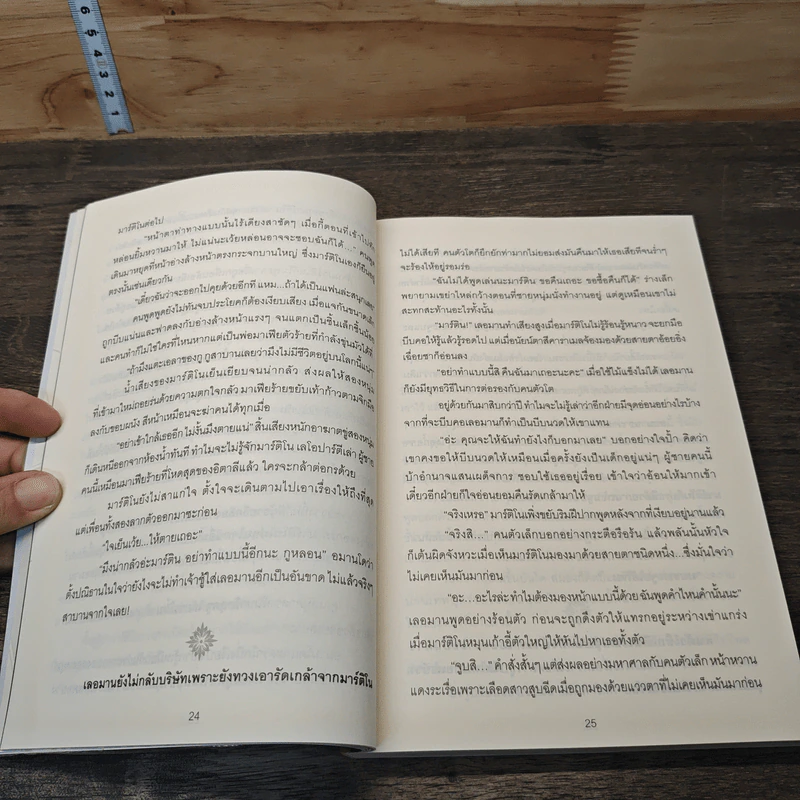 6 5 4 3 2 1
มาร์ติโนต่อไป
"หน้าตาท่าทางแบบนั้นไร้เดียงสาชัดๆ เมื่อกี้ตอนที่เข้าไป
หล่อนยิ้มหวานมาให้ ไม่แน่นะเว้ยหล่อนอาจจะชอบฉันก็ได้..."
เดินมาหยุดที่หน้าอ่างล้างหน้าตรงกระจกบานใหญ่ ซึ่งมาร์ติโนเองก็ยืนอยู่
ตรงนั้นเช่นเดียวกัน
"เดี๋ยวฉันว่าจะออกไปคุยด้วยอีกที แหม...ถ้าได้เป็นแฟนล่ะสนุกเลย"
คนพูดพูดยังไม่ทันจบประโยคก็ต้องเงียบเสียง เมื่อแจกันขนาดเล็ก
ถูกบีบแน่นและฟาดลงกับอ่างล้างหน้าแรงๆ จนแตกเป็นชิ้นเล็กชิ้นน้อย
และคนทำก็ไม่ใช่ใครที่ไหนหากแต่เป็นพ่อมาเฟียตัวร้ายที่กำลังขุ่นมัวได้ที่
"ถ้ามึงแตะเอลาของกู กูสาบานเลยว่ามึงไม่มีชีวิตอยู่บนโลกนี้แน่"
น้ำเสียงของมาร์ติโนเย็นเยียบจนน่ากลัว ส่งผลให้สองหนุ่ม
ที่เข้ามาใหม่ถอยร่นด้วยความตกใจกลัว มาเฟียร้ายขยับเท้าก้าวตามจิกมือ
ลงกับขอบผนัง สีหน้าเหมือนจะฆ่าคนได้ทุกเมื่อ
"อย่าเข้าใกล้เธออีก ไม่งั้นมึงตายแน่" สิ้นเสียงหนักอาฆาตคู่สองหนุ่ม
ก็เดินหนีออกจากห้องน้ำทันที ทำไมจะไม่รู้จักมาร์ติโน เลโอปาร์ดีเล่า ผู้ชาย
คนนี้เหมือนมาเฟียร้ายที่โหดสุดของอิตาลีแล้ว ใครจะกล้าต่อกรด้วย
มาร์ติโนยังไม่สาแก่ใจ ตั้งใจจะเดินตามไปเอาเรื่องให้ถึงที่สุด
แต่เพื่อนทั้งสองลากตัวออกมาซะก่อน
"ใจเย็นเว้ย...ให้ตายเถอะ"
"มึงน่ากลัวอ่ะมาร์ติน อย่าทำแบบนี้อีกนะ กูหลอน" อมานโดว่า
ตั้งปณิธานในใจว่ายังไงจะไม่ทำเจ้าชู้ใส่เลอมานอีกเป็นอันขาด ไม่แล้วจริงๆ
สาบานจากใจเลย!
เลอมานยังไม่กลับบริษัทเพราะยังทวงเอารัดเกล้าจากมาร์ติโน
24
ไม่ได้เสียที คนตัวโตก็ยึกยักท่ามากไม่ยอมส่งมันคืนมาให้เธอเสียทีจนร่ำๆ
จะร้องไห้อยู่รอมร่อ
"ฉันไม่ได้พูดเล่นนะมาร์ติน ขอคืนเถอะ ขอซื้อคืนก็ได้" ร่างเล็ก
พยายามเขย่าไหล่กว้างตอนที่ชายหนุ่มนั่งทำงานอยู่ แต่ดูเหมือนเขาไม่
สะทกสะท้านอะไรทั้งนั้น
"มาร์ติน!" เลอมานทำเสียงสูงเมื่อมาร์ติโนไม่รู้ร้อนรู้หนาว จะยกมือ
บีบคอให้รู้แล้วรู้รอดไป แต่เมื่อนัยน์ตาสีคาราเมลจ้องมองด้วยสายตาอ้อยอิ่ง
เชื่อยชาก็อ่อนลง
"อย่าทำแบบนี้สิ คืนฉันมาเถอะนะคะ" เมื่อใช้ไม้แข็งไม่ได้ เลอมาน
ก็ยังมียุทธวิธีในการต่อรองกับคนตัวโต
อยู่ด้วยกันมาสิบกว่าปี ทำไมจะไม่รู้เล่าว่าอีกฝ่ายมีจุดอ่อนอย่างไรบ้าง
จากที่จะบีบคอเลอมานก็ทำเป็นบีบนวดให้เขาแทน
"อ่ะ คุณจะให้ฉันทำยังไงก็บอกมาเลย" บอกอย่างใจป้ำ คิดว่า
เขาคงขอให้บีบนวดให้เหมือนเมื่อครั้งยังเป็นเด็กอยู่แน่ๆ ผู้ชายคนนี้
บ้าอำนาจแสนเผด็จการ ชอบใช้เธออยู่เรื่อย เข้าใจว่าอ้อนให้มากเข้า
เดี๋ยวอีกฝ่ายก็ใจอ่อนยอมคืนรัดเกล้ามาให้
"จริงเหรอ" มาร์ติโนเพิ่งขยับริมฝีปากพูดหลังจากที่เงียบอยู่นานแล้ว
"จริงสิ..." คนตัวเล็กบอกอย่างกระตือรือร้น แล้วพลันนั้นหัวใจ
ก็เต้นผิดจังหวะเมื่อเห็นมาร์ติโนมองมาด้วยสายตาชนิดหนึ่ง...ซึ่งมั่นใจว่า
ไม่เคยเห็นมันมาก่อน
"อะ...อะไรล่ะ ทำไมต้องมองหน้าแบบนี้ด้วยฉันพูดคำไหนคำนั้นนะ"
เลอมานพูดอย่างร้อนตัว ก่อนจะถูกดึงตัวให้แทรกอยู่ระหว่างเข่าแกร่ง
เมื่อมาร์ติโนหมุนเก้าอี้ตัวใหญ่ให้หันไปหาเธอทั้งตัว
"จูบสิ..." คำสั่งสั้นๆ แต่ส่งผลอย่างมหาศาลกับคนตัวเล็ก หน้าหวาน
แดงระเรื่อเพราะเลือดสาวสูบฉีดเมื่อถูกมองด้วยแววตาที่ไม่เคยเห็นมันมาก่อน
25